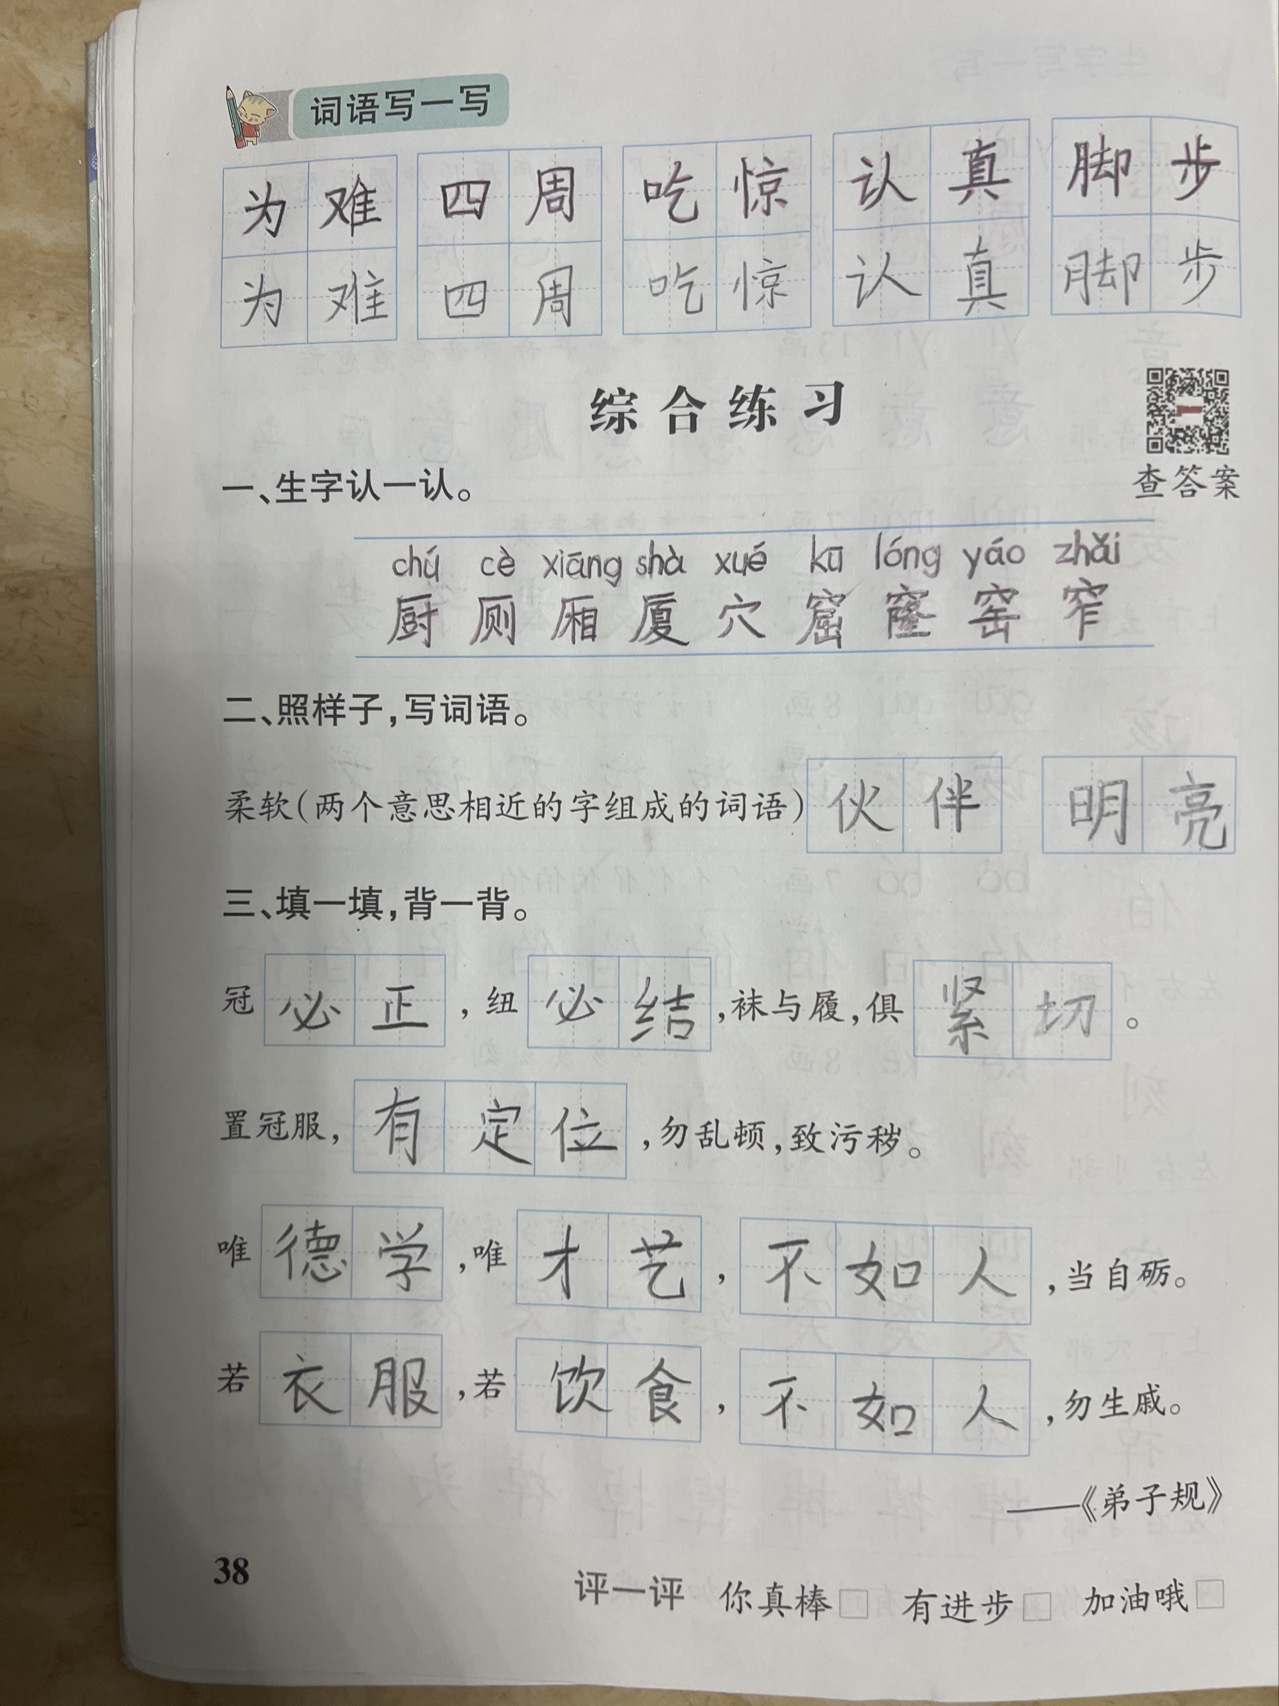 词语写一写
为难 四周 吃惊 认真 脚步
为难 四周 吃惊 认真 脚步
综合练习
查答案
一、生字认一认。
chú cè xiāng shà xué kū lóng yáo zhǎi
厨 厕 厢 厦 穴 窟 窿 窑 窄
二、照样子，写词语。
柔软(两个意思相近的字组成的词语) 伙伴 明亮
三、填一填，背一背。
冠必正，纽必结，袜与履，俱紧切。
置冠服，有定位，勿乱顿，致污秽。
唯德学，唯才艺，不如人，当自砺。
若衣服，若饮食，不如人，勿生戚。
——《弟子规》
38
评一评 你真棒□ 有进步□ 加油哦□